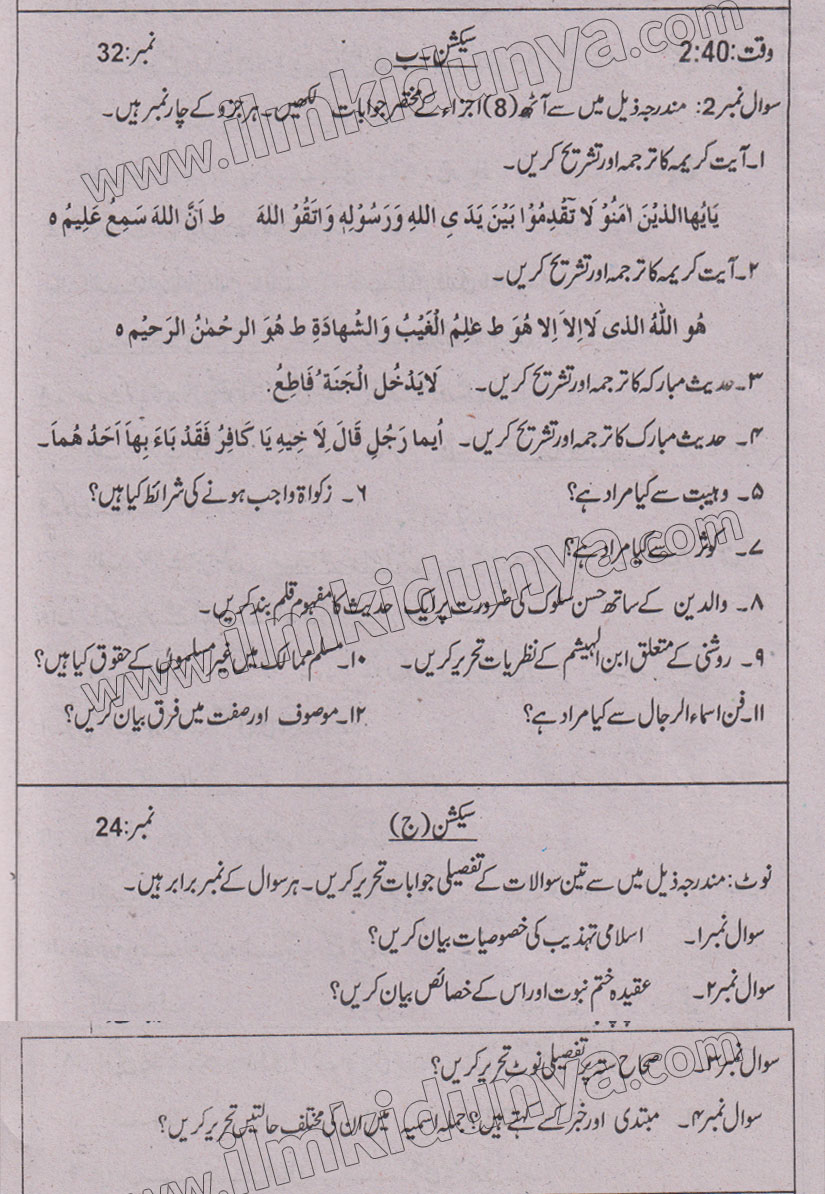 وقت:2:40 سیکشن۔ب نمبر:32
سوال نمبر2: مندرجہ ذیل میں سے آٹھ (8) اجزاء کے مختصر جوابات لکھیں۔ ہر جزو کے چار نمبر ہیں۔
۱۔ آیت کریمہ کا ترجمہ اور تشریح کریں۔
یَایُھاالذِیْنَ اٰمَنُوْ لَا تقَدِمُوْا بَیْنَ یَدَیِ اللہِ وَرَسُوْلِہٖ وَاتَقُوْ اللہَ ط اَنَّ اللہَ سَمِعُ عَلِیمُ ہ
۲۔ آیت کریمہ کا ترجمہ اور تشریح کریں۔
ھُو اللّٰہُ الذی لَااِلاَ اِلا ھُوَ ط عٰلِمُ الْغَیْبُ وَالشْھادَۃِ ط ھُوَ الرحْمٰنُ الرَحیْم ہ
۳۔ حدیث مبارکہ کا ترجمہ اور تشریح کریں۔ لَایَدْخُل الْجَنَۃ فَاطِعُ.
۴۔ حدیث مبارک کا ترجمہ اور تشریح کریں۔ اُیما رَجُلِ قَالَ لِاَ خِیہِ یَا کَافِرُ فَقَدُ بَاءَ بِھاَ اَحَدُ ھُماَ۔
۵۔ وہیبت سے کیا مراد ہے؟ ۶۔ زکواۃ واجب ہونے کی شرائط کیا ہیں؟
۷۔ کوثر سے کیا مراد ہے؟
۸۔ والدین کے ساتھ حسن سلوک کی ضرورت پر ایک حدیث کا مفہوم قلم بند کریں۔
۹۔ روشنی کے متعلق ابن الہیشم کے نظریات تحریر کریں۔ ۱۰۔ مسلم ممالک میں غیر مسلموں کے حقوق کیا ہیں؟
۱۱۔ فن اسماء الرجال سے کیا مراد ہے؟ ۱۲۔ موصوف اور صفت میں فرق بیان کریں؟
سیکشن (ج) نمبر:24
نوٹ: مندرجہ ذیل میں سے تین سوالات کے تفصیلی جوابات تحریر کریں۔ ہر سوال کے نمبر برابر ہیں۔
سوال نمبر۱۔ اسلامی تہذیب کی خصوصیات بیان کریں؟
سوال نمبر۲۔ عقیدہ ختم نبوت اور اس کے خصائص بیان کریں؟
سوال نمبر۳۔ صحاح ستہ پر تفصیلی نوٹ تحریر کریں؟
سوال نمبر۴۔ مبتدی اور خبر کسے کہتے ہیں؟ جملہ اسمیہ میں ان کی مختلف حالتیں تحریر کریں؟
www.ilmkidunya.com
www.ilmkidunya.com
www.ilmkidunya.com